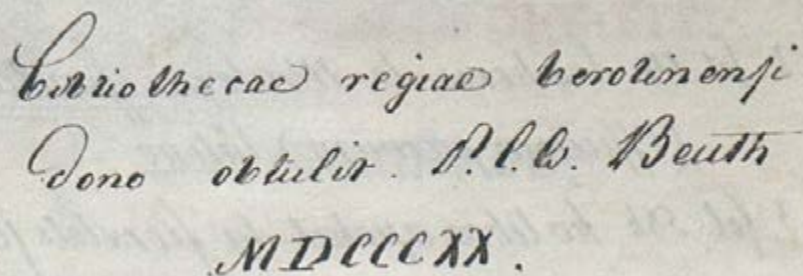 Bibliothecae regiae berolinensi
dono obtulit. P. C. W. Beuth
MDCCCXX.